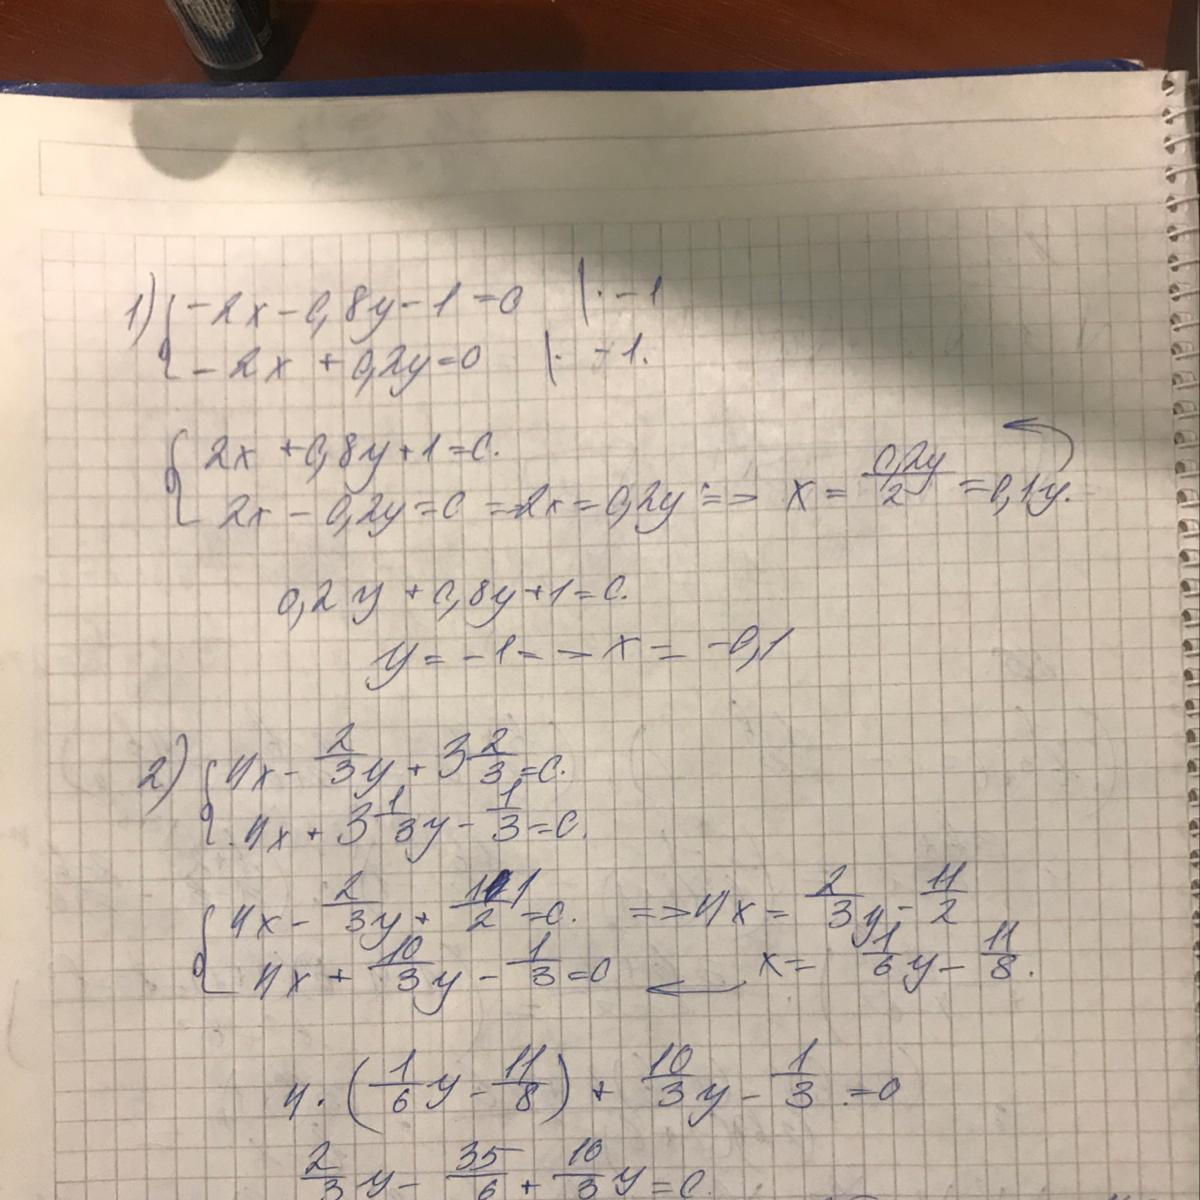 1) { -2x - 0,8y - 1 = 0 | · -1
-2x + 0,2y = 0 | · -1.
{ 2x + 0,8y + 1 = 0.
2x - 0,2y = 0 => 2x = 0,2y => x = 0,2y/2 = 0,1y.
0,2y + 0,8y + 1 = 0.
y = -1 => x = -0,1
2) { 4x - 2/3 y + 3 2/3 = 0.
4x + 3 1/3 y - 1/3 = 0.
{ 4x - 2/3 y + 11/2 = 0. => 4x = 2/3 y - 11/2
4x + 10/3 y - 1/3 = 0 ← x = 1/6 y - 11/8.
4 · (1/6 y - 11/8) + 10/3 y - 1/3 = 0
2/3 y - 35/6 + 10/3 y = 0.